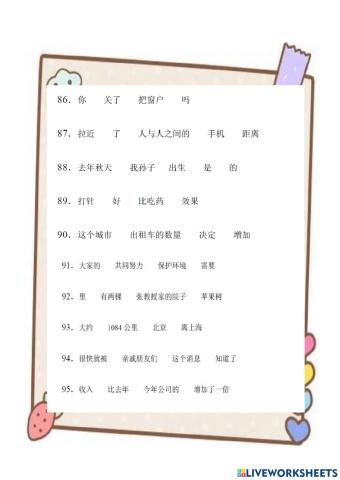 86. 你 关了 把窗户 吗
87. 拉近 了 人与人之间的 手机 距离
88. 去年秋天 我孙子 出生 是 的
89. 打针 好 比吃药 效果
90. 这个城市 出租车的数量 决定 增加
91. 大家的 共同努力 保护环境 需要
92. 里 有两棵 张教授家的院子 苹果树
93. 大约 1084 公里 北京 离上海
94. 很快就被 亲戚朋友们 这个消息 知道了
95. 收入 比去年 今年公司的 增加了一倍
LIVEWORKSHEETS